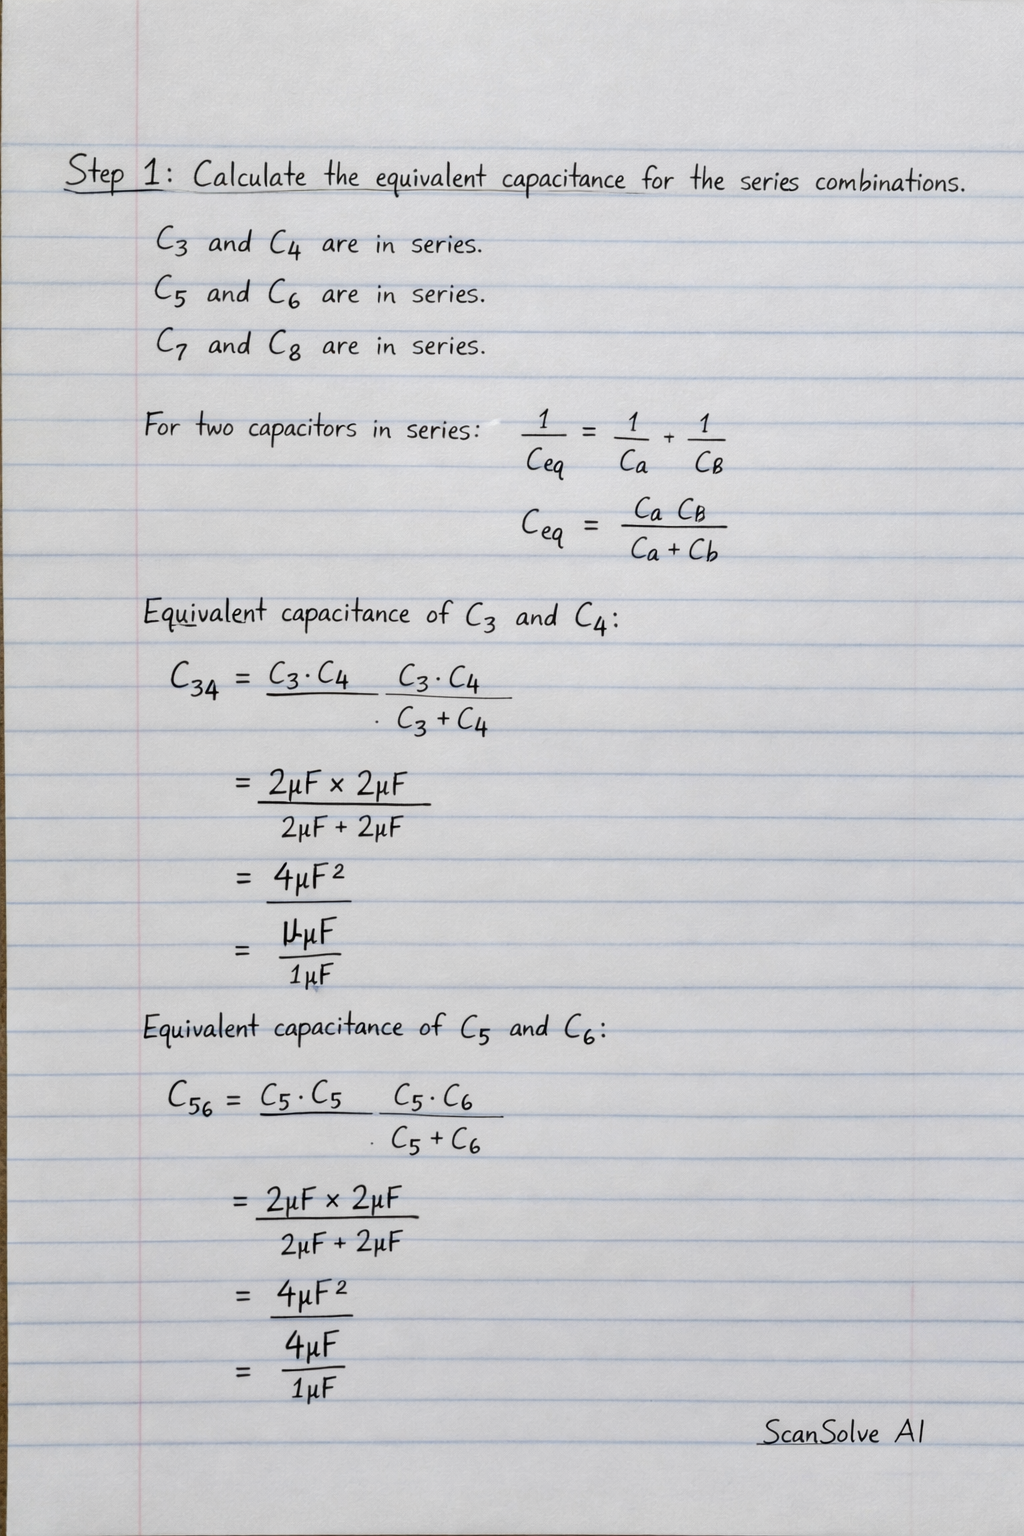 Step 1: Calculate the equivalent capacitance for the series combinations.
C3 and C4 are in series.
C5 and C6 are in series.
C7 and C8 are in series.
For two capacitors in series: 1/Ceq = 1/Ca + 1/CB
Ceq = Ca CB / Ca + Cb
Equivalent capacitance of C3 and C4:
C34 = C3·C4 C3·C4 / C3 + C4
= 2μF × 2μF
2μF + 2μF
= 4μF²
= μF
1μF
Equivalent capacitance of C5 and C6:
C56 = C5·C5 C5·C6 / C5 + C6
= 2μF × 2μF
2μF + 2μF
= 4μF²
= 4μF
1μF
ScanSolve AI